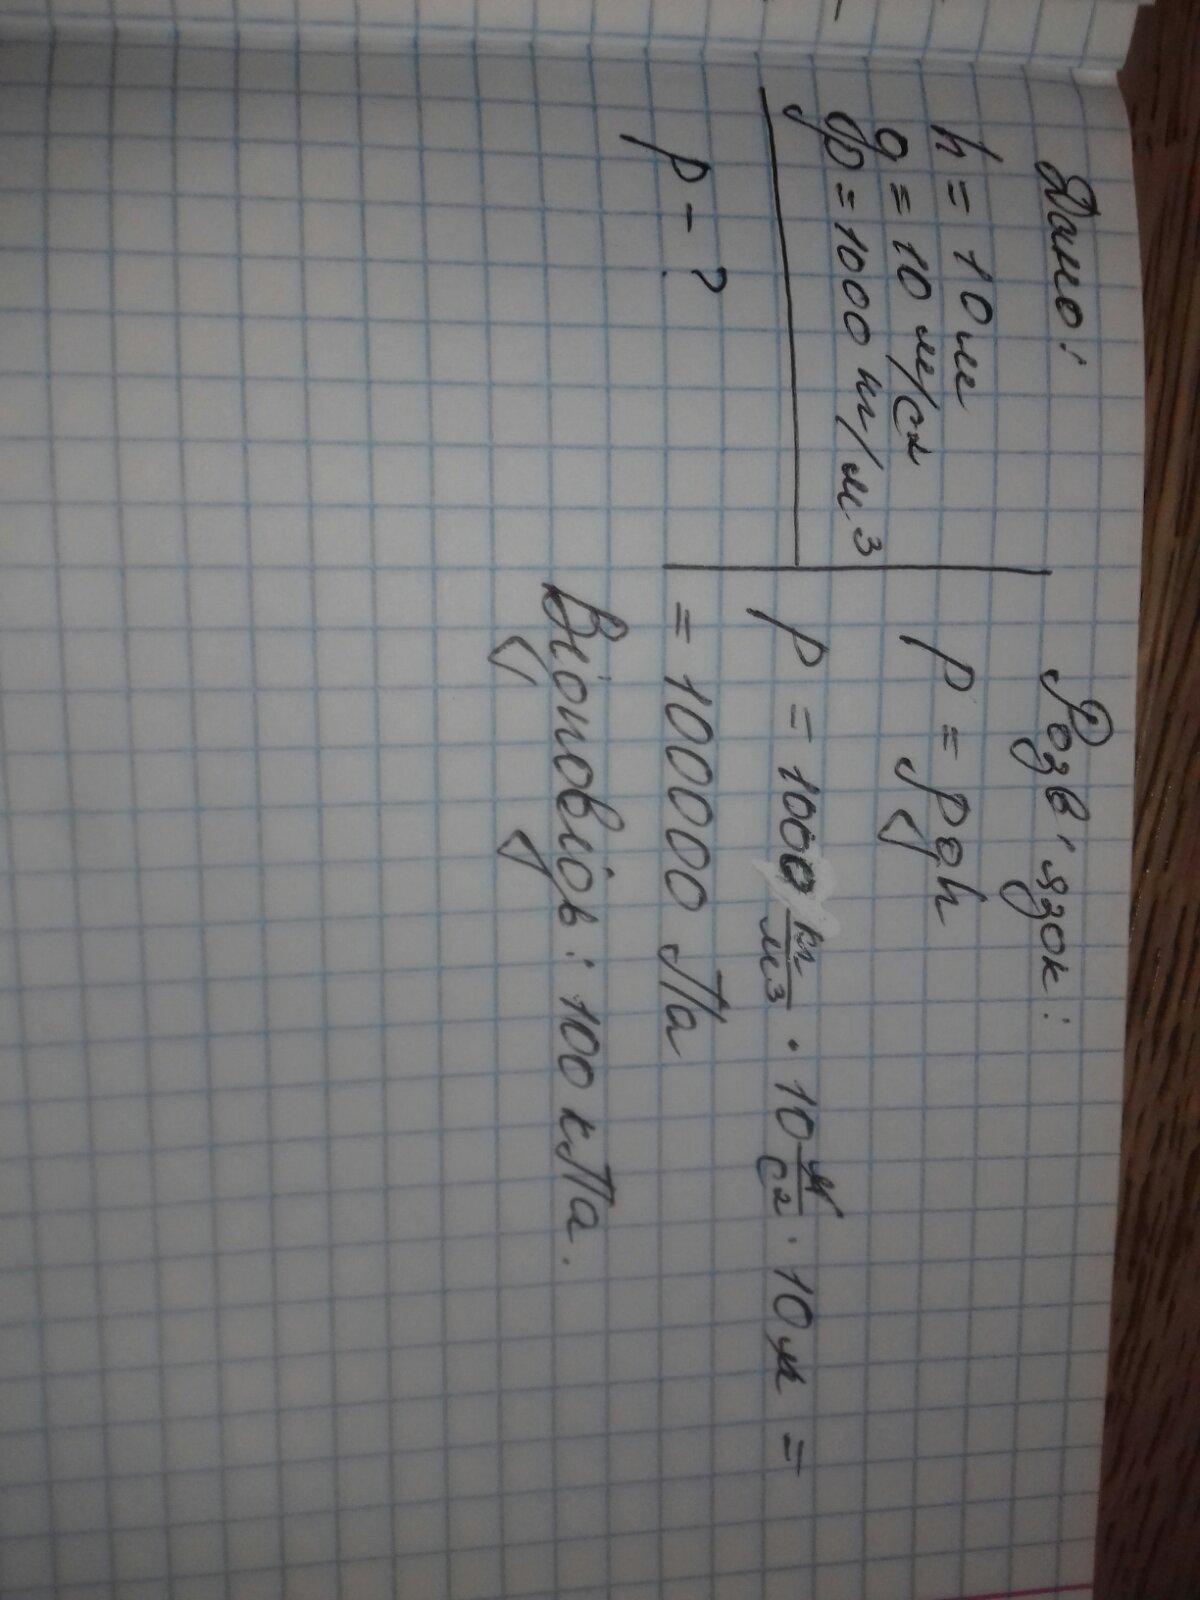 Дано:
h = 10м
g = 10 м/с2
ρ = 1000 кг/м3
p - ?
Розв'язок:
p = ρgh
p = 1000 кг/м3 · 10 м/с2 · 10м =
= 100000 Па
Відповідь: 100 кПа.